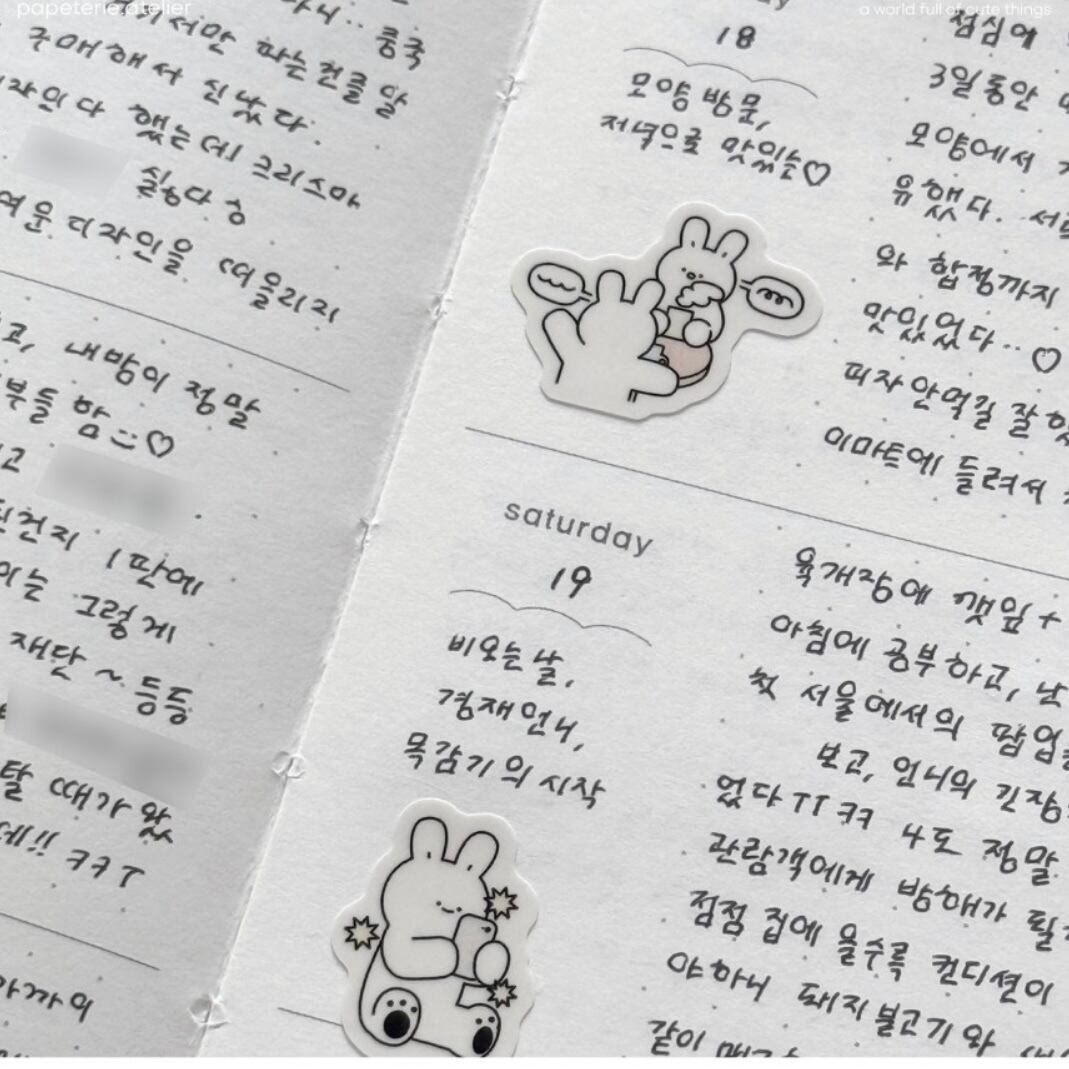 papeterie.atelier
a world full of cute things
구매해서 신났다.
했는데! 크리스마
싫었다 ㅎ
디자인을 떠올리지
내방이 정말
부들 함 ♡
1판에
이는 그렇게
재단 ~ 등등
탈 때가 왔
데!! ㅋㅋㅜ
18
모양 방문,
저녁으로 맛있는♡
점심에
3일동안
모양에서
유했다..
와 합정까지
맛있었다..♡
피자 안먹길 잘했
이마트에 들려서
saturday
19
비오는 날,
경재언니,
목감기의 시작
육개장에 깻잎+
아침에 공부하고, 난
첫 서울에서의 팝업
보고, 언니의 긴장
었다ㅜㅜ ㅋㅋ 나도 정말
관람객에게 방해가 될
점점 집에 올수록 컨디션이
야하니 돼지불고기와
같이